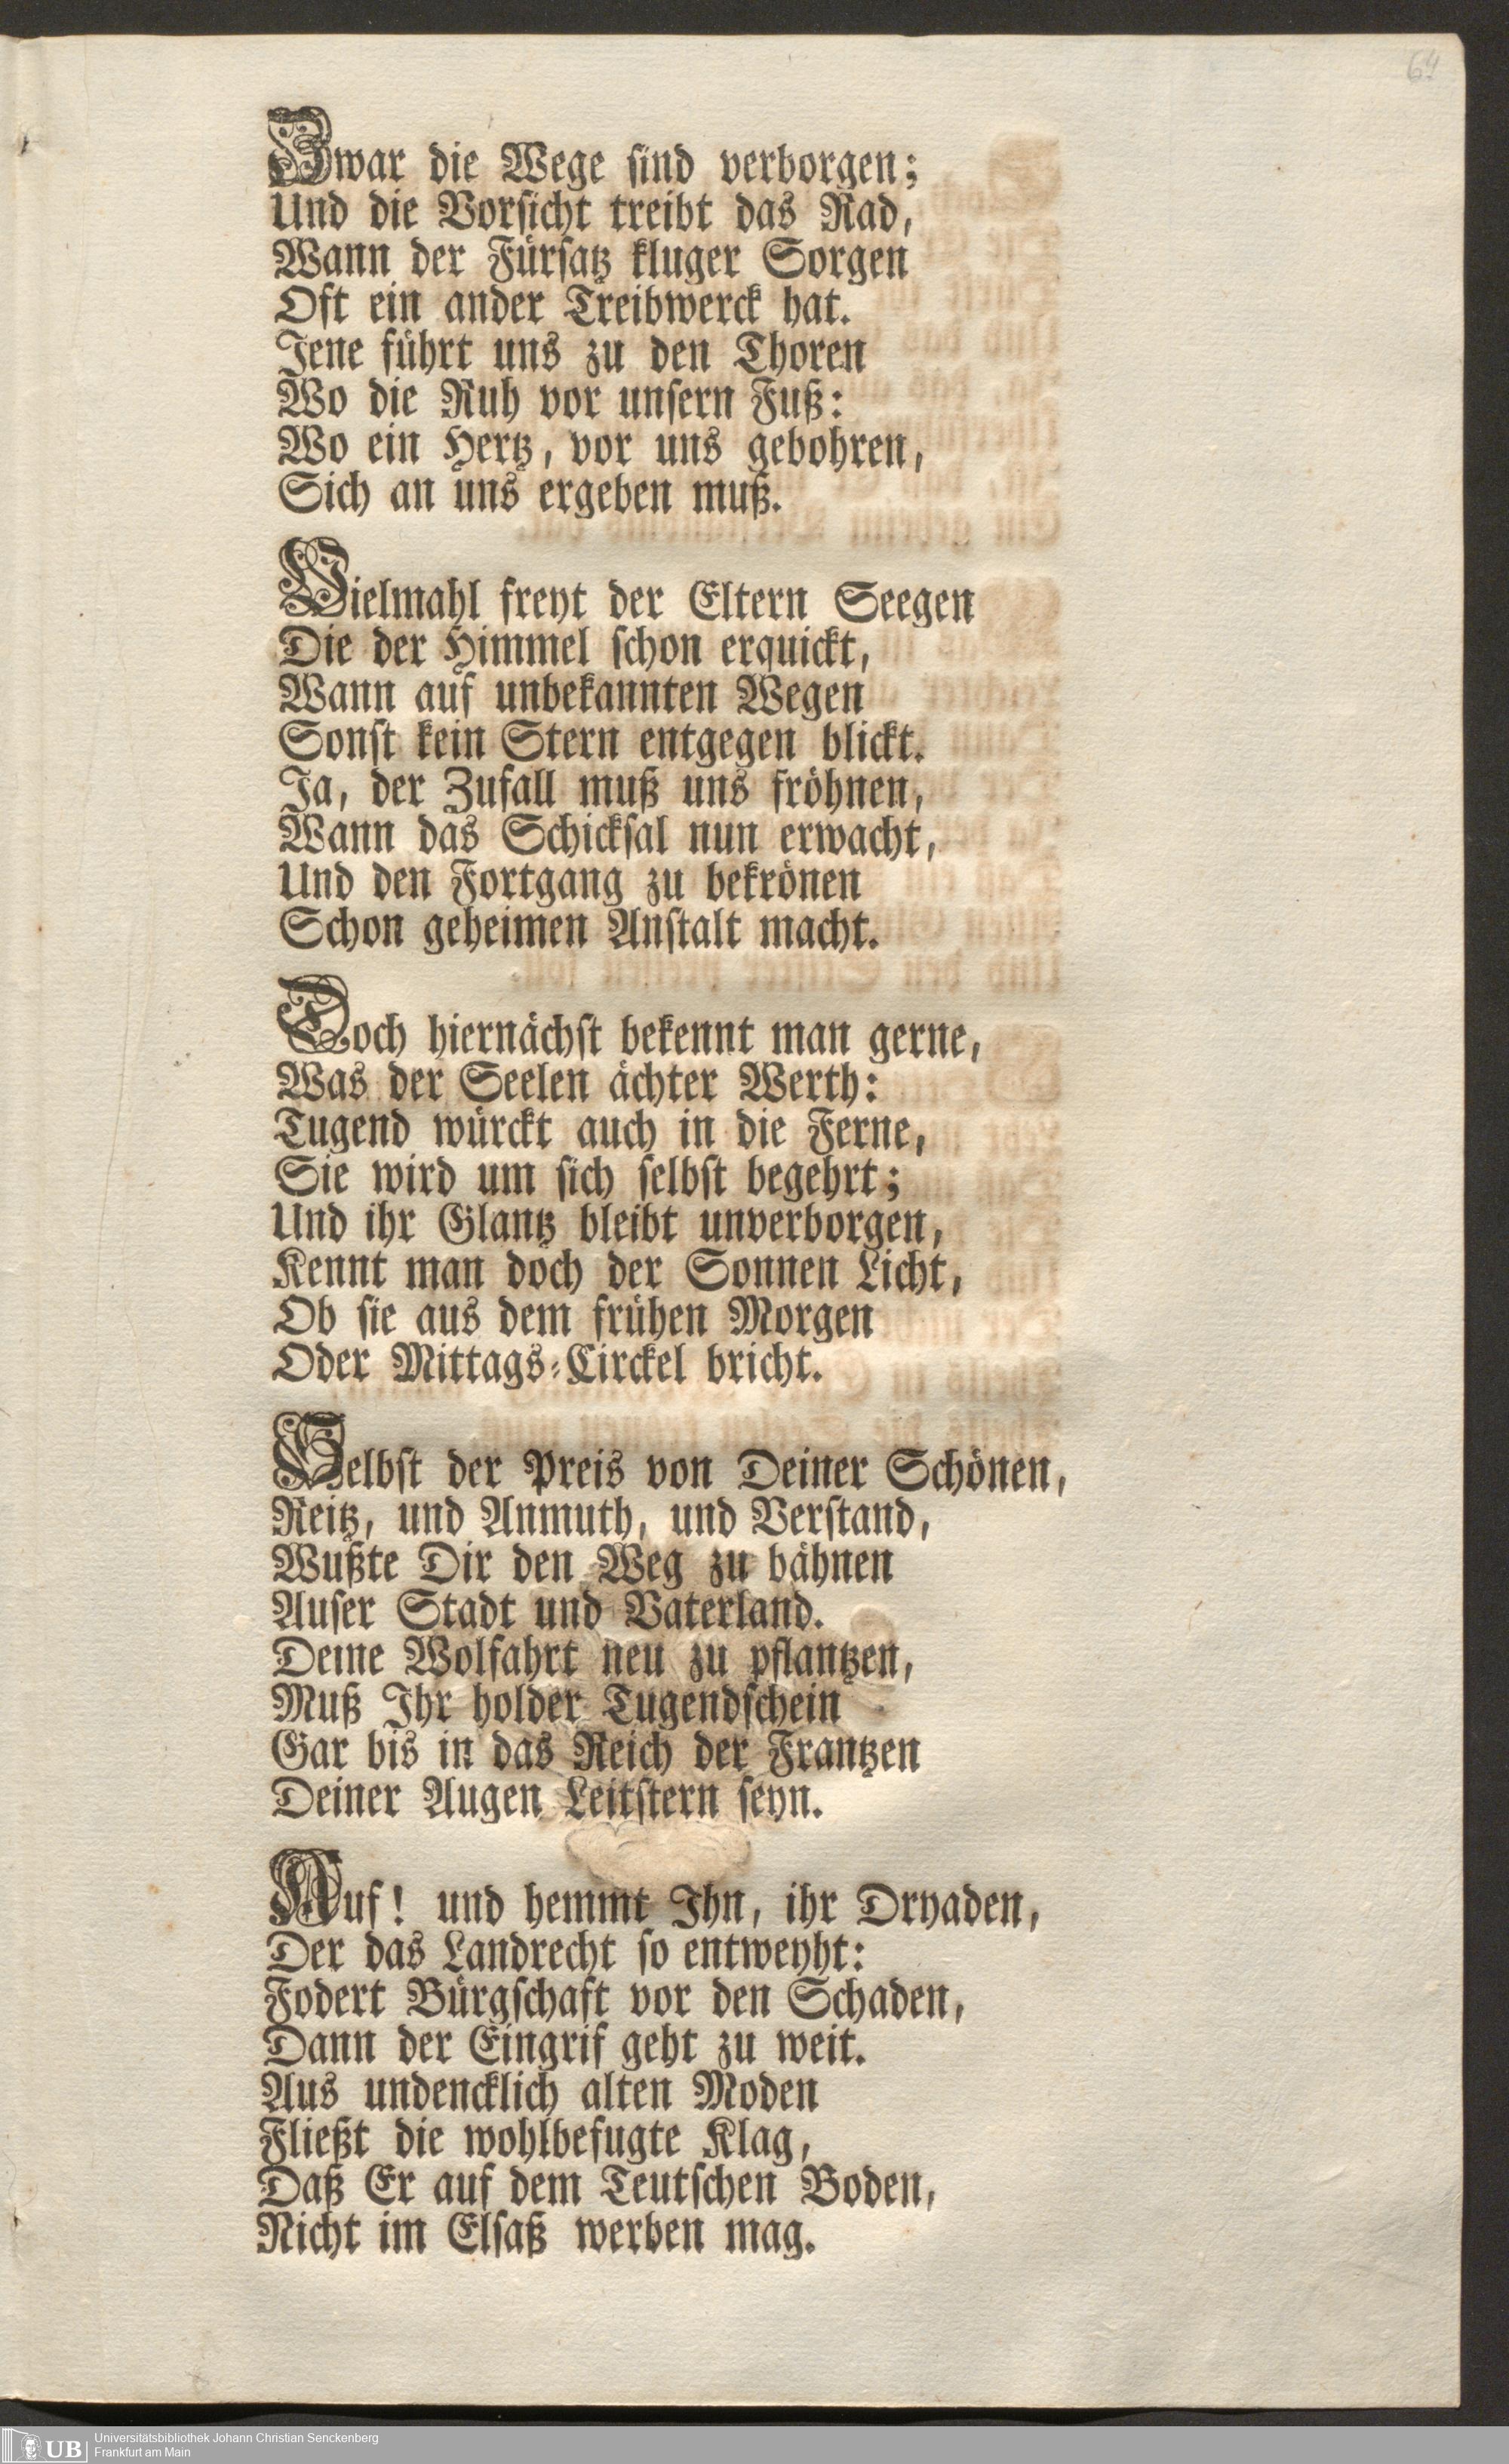 64
Zwar die Wege sind verborgen;
Und die Vorsicht treibt das Rad,
Wann der Fürsatz kluger Sorgen
Oft ein ander Treibwerck hat.
Jene führt uns zu den Thoren
Wo die Ruh vor unsern Fuß:
Wo ein Hertz, vor uns gebohren,
Sich an uns ergeben muß.
Vielmahl freyt der Eltern Seegen
Die der Himmel schon erquickt,
Wann auf unbekannten Wegen
Sonst kein Stern entgegen blickt.
Ja, der Zufall muß uns fröhnen,
Wann das Schicksal nun erwacht,
Und den Fortgang zu bekrönen
Schon geheimen Anstalt macht.
Doch hiernächst bekennt man gerne,
Was der Seelen ächter Werth:
Tugend würckt auch in die Ferne,
Sie wird um sich selbst begehrt;
Und ihr Glantz bleibt unverborgen,
Kennt man doch der Sonnen Licht,
Ob sie aus dem frühen Morgen
Oder Mittags-Circkel bricht.
Selbst der Preis von Deiner Schönen,
Reitz, und Anmuth, und Verstand,
Wußte Dir den Weg zu bähnen
Auser Stadt und Vaterland.
Deine Wolfahrt neu zu pflantzen,
Muß Ihr holder Tugendschein
Gar bis in das Reich der Frantzen
Deiner Augen Leitstern seyn.
Auf! und hemmt Ihn, ihr Dryaden,
Der das Landrecht so entweyht:
Fodert Bürgschaft vor den Schaden,
Dann der Eingrif geht zu weit.
Aus undencklich alten Moden
Fließt die wohlbefugte Klag,
Daß Er auf dem Teutschen Boden,
Nicht im Elsaß werben mag.
UB Universitätsbibliothek Johann Christian Senckenberg
Frankfurt am Main